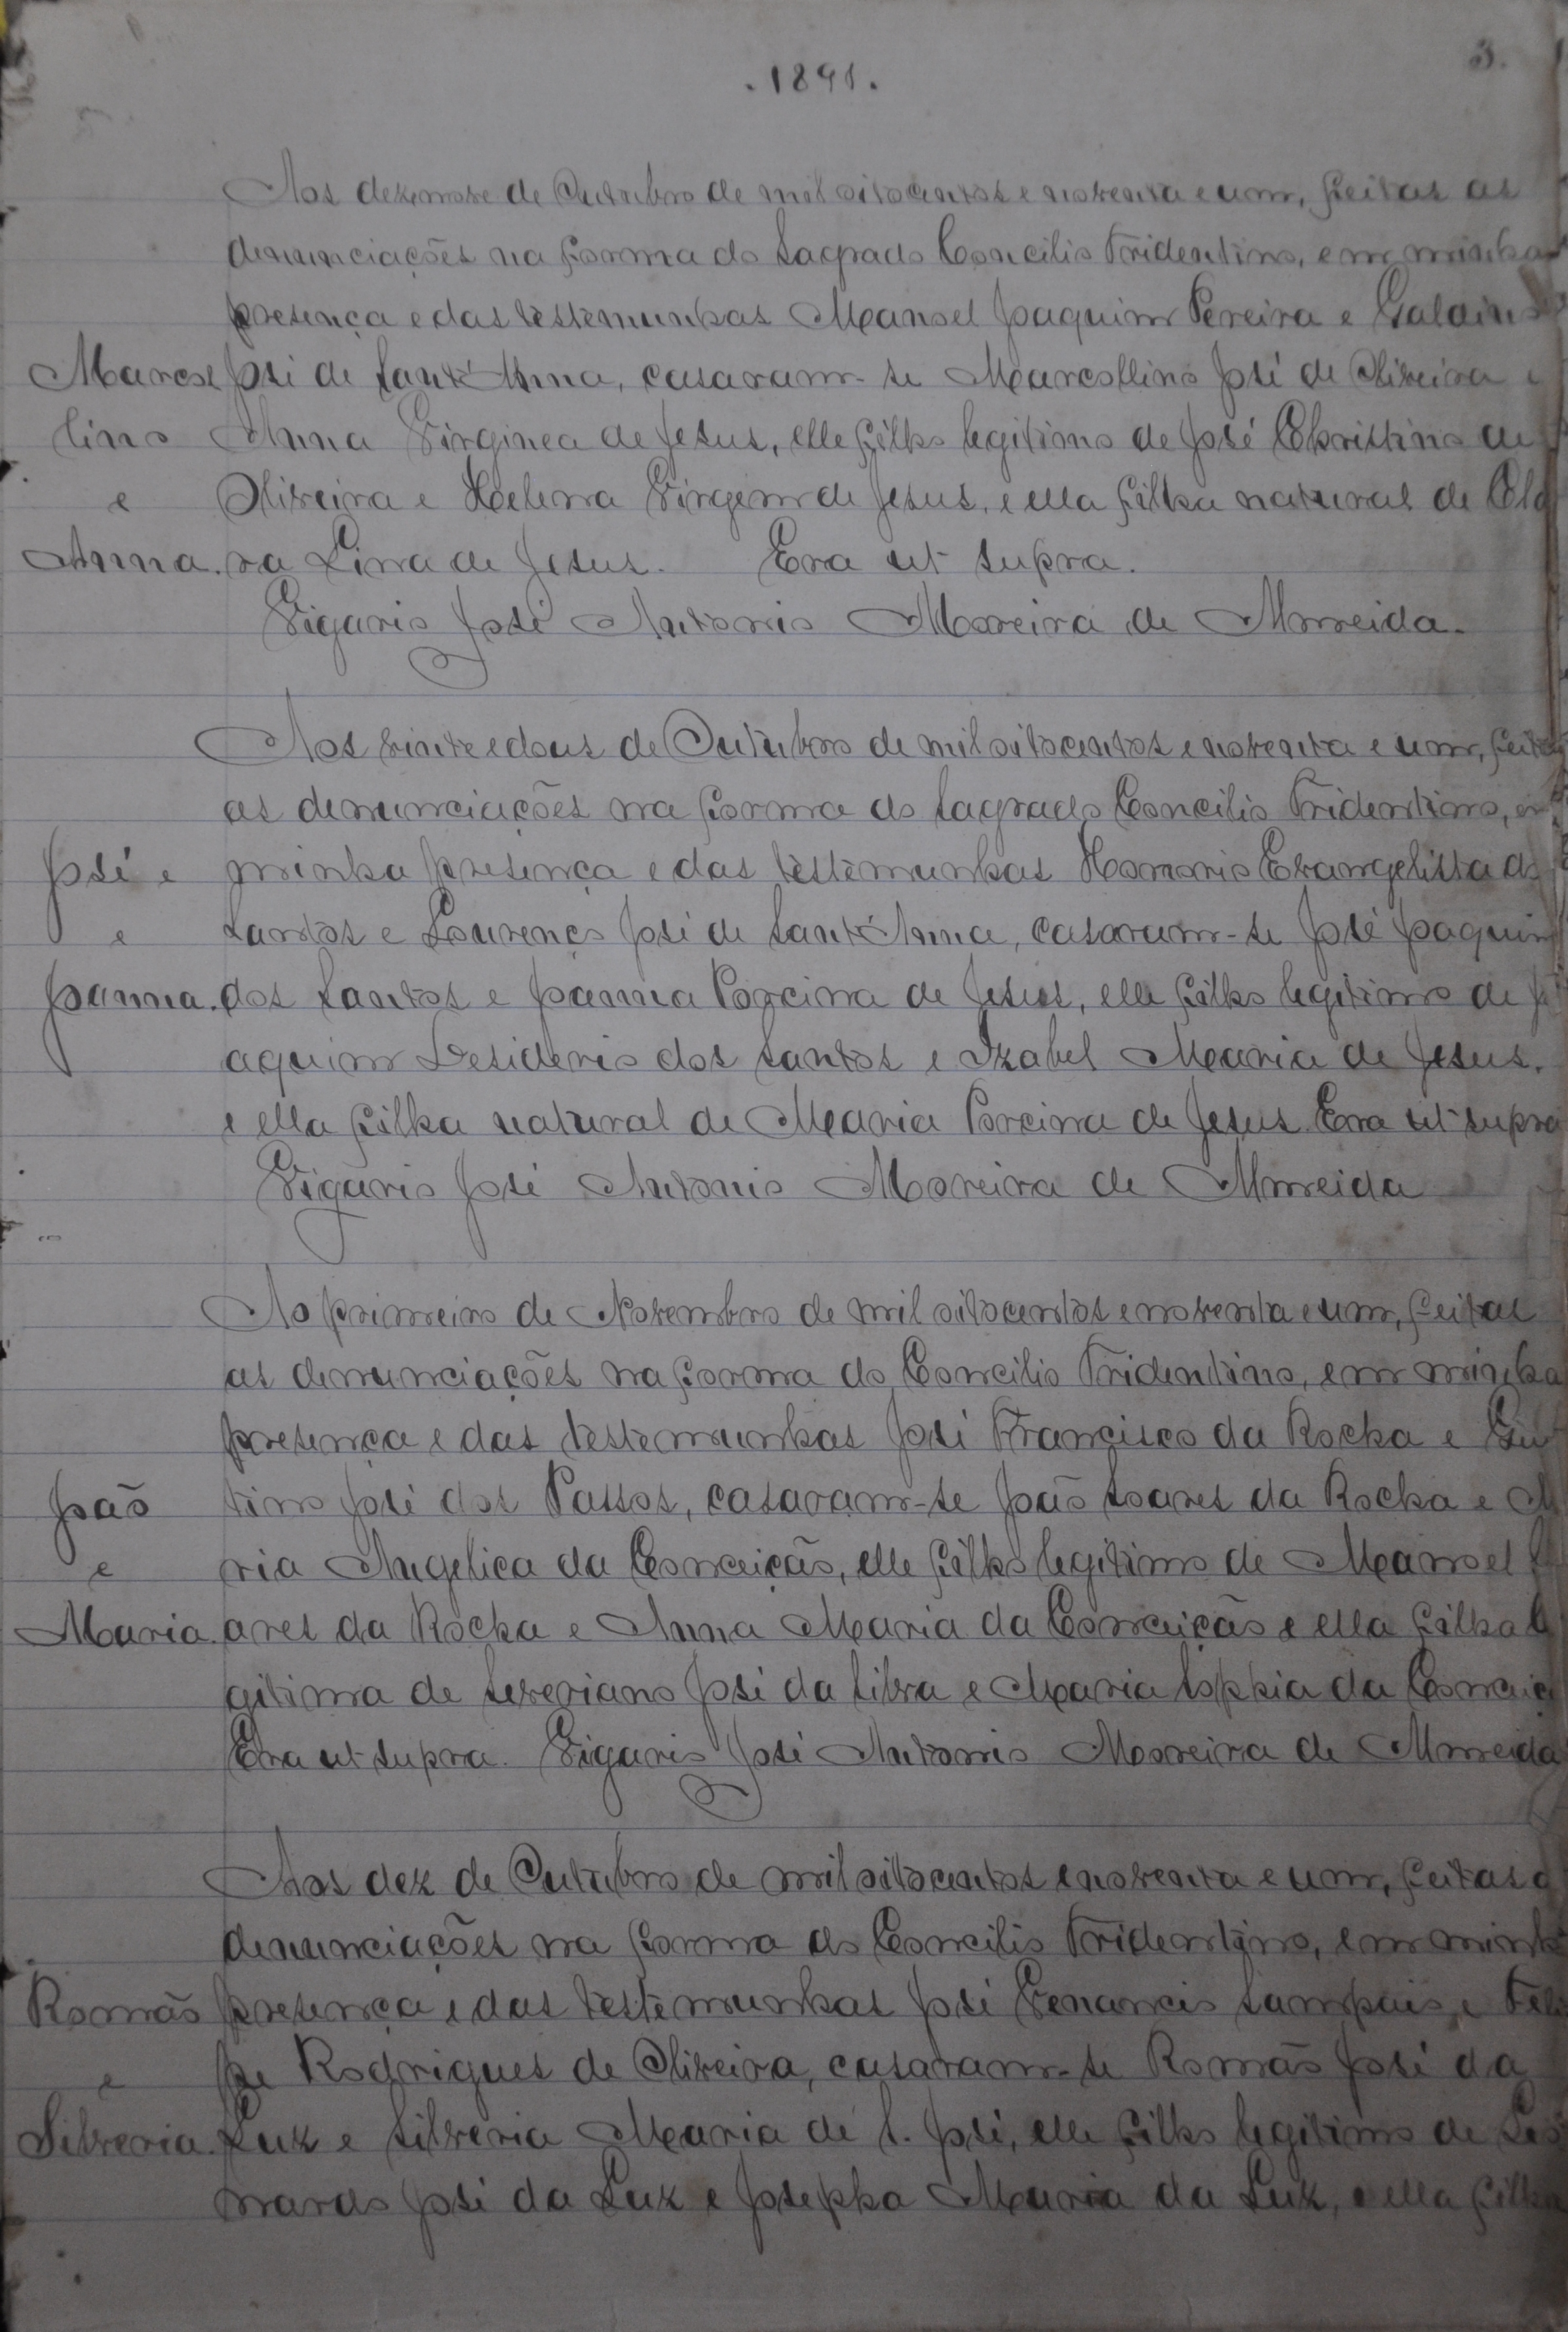 3.
.1891.
Aos dezenove de Outubro de mil oitocentos e noventa e um, feitas as
denunciações na forma do Sagrado Concilio Tridentino, em minha
presença e das testemunhas Manoel Joaquim Pereira e Galdino
Marcol José de Sant'Anna, casaram-se Marcollino José de Oliveira e
lino Anna Virginea de Jesus, elle filho legitimo de José Christino de
e Oliveira e Helena Virgem de Jesus, e ella filha natural de Cla
Anna. ra Lina de Jesus. Era ut supra.
Vigario José Antonio Moreira de Almeida.
Aos vinte e dous de Outubro de mil oitocentos e noventa e um, feitas
as denunciações na forma do Sagrado Concilio Tridentino, em
José e minha presença e das testemunhas Honorio Evangelista dos
e Santos e Lourenço José de Sant'Anna, casaram-se José Joaquim
Joanna. dos Santos e Joanna Porcina de Jesus, elle filho legitimo de Jo
aquim Desiderio dos Santos e Izabel Maria de Jesus,
e ella filha natural de Maria Porcina de Jesus. Era ut supra
Vigario José Antonio Moreira de Almeida
Ao primeiro de Novembro de mil oitocentos e noventa e um, feitas
as denunciações na forma do Concilio Tridentino, em minha
presença e das testemunhas José Francisco da Rocha e
João tino José dos Passos, casaram-se João Soares da Rocha e Ma
e ria Angelica da Conceição, elle filho legitimo de Manoel So
Maria. ares da Rocha e Anna Maria da Conceição e ella filha le
gitima de Severiano José da Silva e Maria Sophia da Conceiç
Era ut supra. Vigario José Antonio Moreira de Almeida
Aos dez de Outubro de mil oitocentos e noventa e um, feitas a
denunciações na forma do Concilio Tridentino, em minh
Romão presença e das testemunhas José Venancio Sampaio, e Feli
e pe Rodrigues de Oliveira, casaram-se Romão José da
Silveria. Luz e Silveria Maria de S. José, elle filho legitimo de Leo
nardo José da Luz e Josepha Maria da Luz, e ella filha